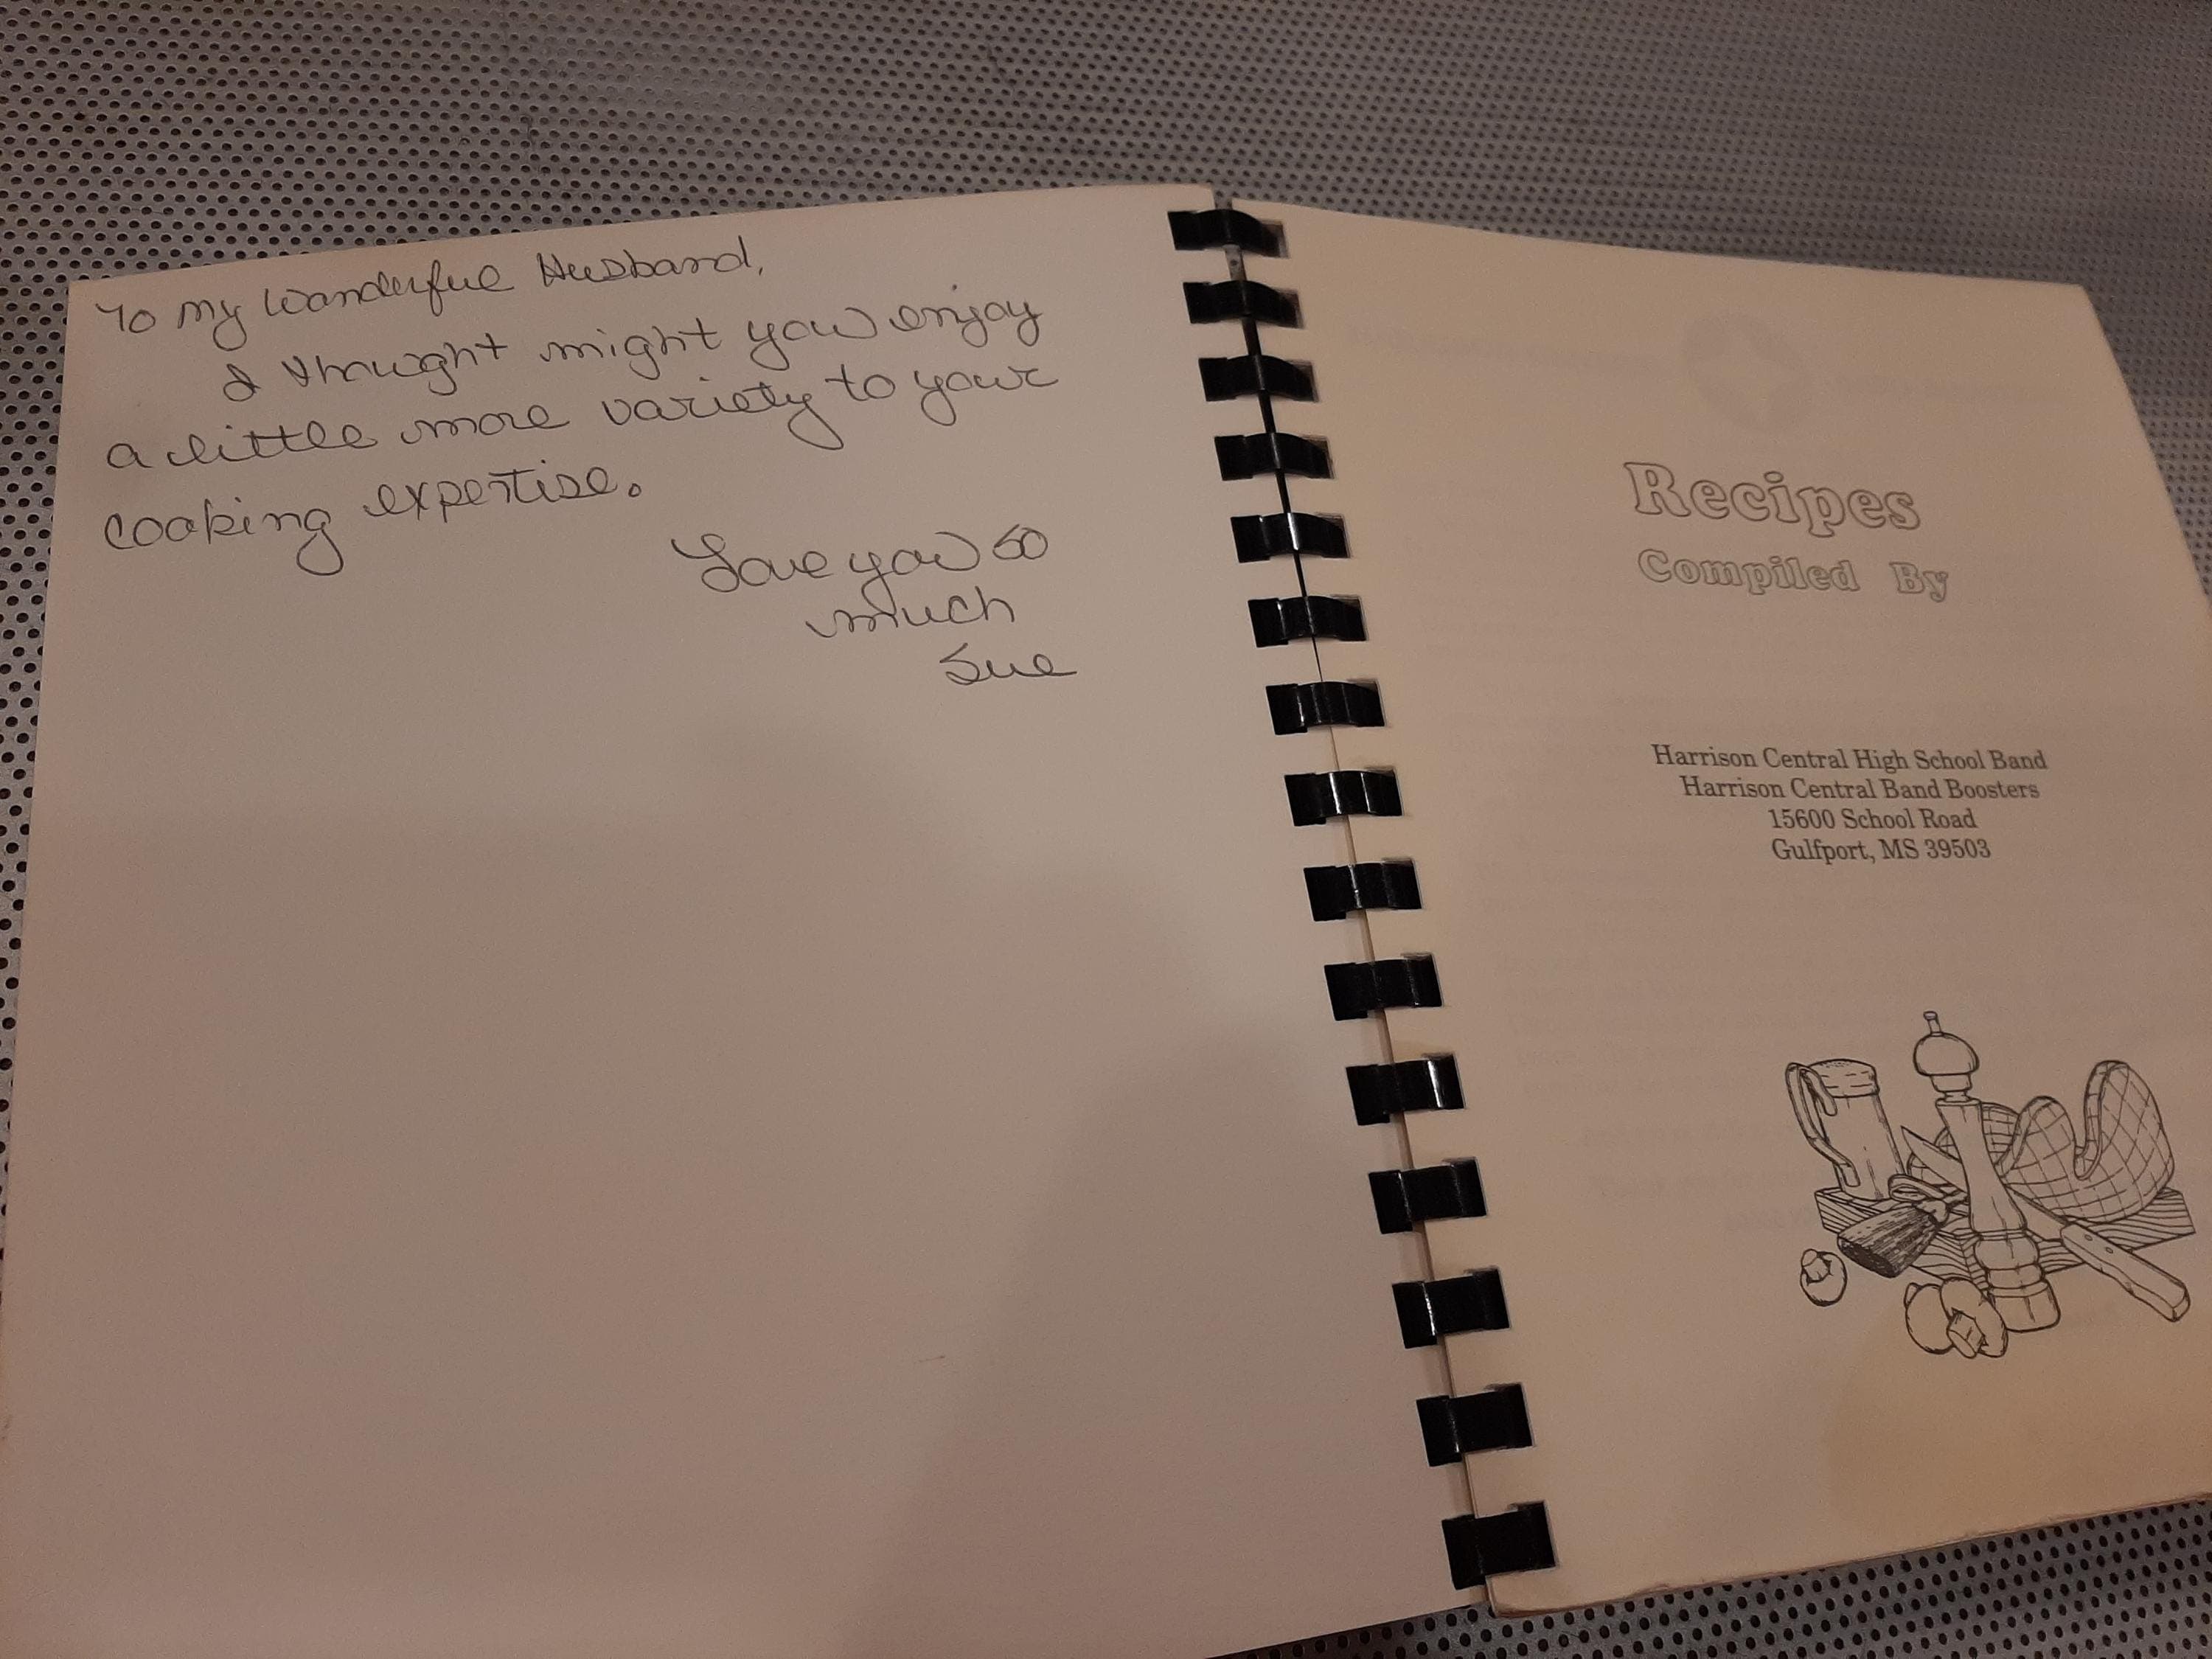 To my Wonderful Husband,
I thought might you enjoy
a little more variety to your
cooking expertise.
Love you so
much
Sue
Recipes
Compiled By
Harrison Central High School Band
Harrison Central Band Boosters
15600 School Road
Gulfport, MS 39503